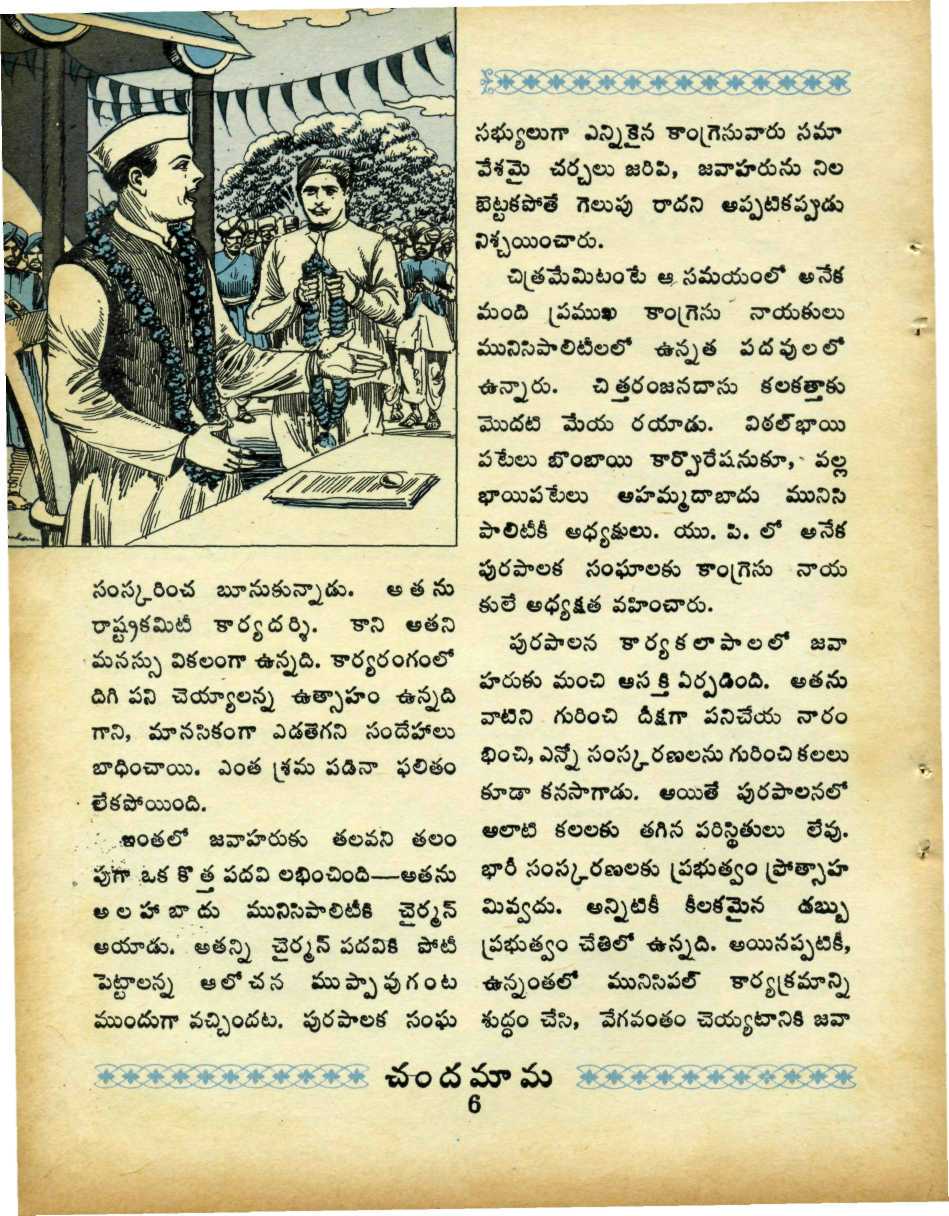 సంస్కరించ బూనుకున్నాడు. అతను
రాష్ట్రకమిటీ కార్యదర్శి. కాని అతని
మనస్సు వికలంగా ఉన్నది. కార్యరంగంలో
దిగి పని చెయ్యాలన్న ఉత్సాహం ఉన్నది
గాని, మానసికంగా ఎడతెగని సందేహాలు
బాధించాయి. ఎంత శ్రమ పడినా ఫలితం
లేకపోయింది.
ఇంతలో జవాహరుకు తలవని తలం
పుగా ఒక కొత్త పదవి లభించింది—అతను
అలహాబాదు మునిసిపాలిటీకి చైర్మన్
అయాడు. అతన్ని చైర్మన్ పదవికి పోటీ
పెట్టాలన్న ఆలోచన ముప్పావుగంట
ముందుగా వచ్చిందట. పురపాలక సంఘ
సభ్యులుగా ఎన్నికైన కాంగ్రెసువారు సమా
వేశమై చర్చలు జరిపి, జవాహరును నిల
బెట్టకపోతే గెలుపు రాదని అప్పటికప్పుడు
నిశ్చయించారు.
చిత్రమేమిటంటే ఆ సమయంలో అనేక
మంది ప్రముఖ కాంగ్రెసు నాయకులు
మునిసిపాలిటీలలో ఉన్నత పదవులలో
ఉన్నారు. చిత్తరంజనదాసు కలకత్తాకు
మొదటి మేయ రయాడు. విఠల్‌భాయి
పటేలు బొంబాయి కార్పొరేషనుకూ, వల్ల
భాయిపటేలు అహమ్మదాబాదు మునిసి
పాలిటీకీ అధ్యక్షులు. యు. పి. లో అనేక
పురపాలక సంఘాలకు కాంగ్రెసు నాయ
కులే అధ్యక్షత వహించారు.
పురపాలన కార్యకలాపాలలో జవా
హరుకు మంచి ఆసక్తి ఏర్పడింది. అతను
వాటిని గురించి దీక్షగా పనిచేయ నారం
భించి, ఎన్నో సంస్కరణలను గురించి కలలు
కూడా కనసాగాడు. అయితే పురపాలనలో
అలాటి కలలకు తగిన పరిస్థితులు లేవు.
భారీ సంస్కరణలకు ప్రభుత్వం ప్రోత్సాహ
మివ్వదు. అన్నిటికీ కీలకమైన డబ్బు
ప్రభుత్వం చేతిలో ఉన్నది. అయినప్పటికీ,
ఉన్నంతలో మునిసిపల్ కార్యక్రమాన్ని
శుద్ధం చేసి, వేగవంతం చెయ్యటానికి జవా
చందమామ
6